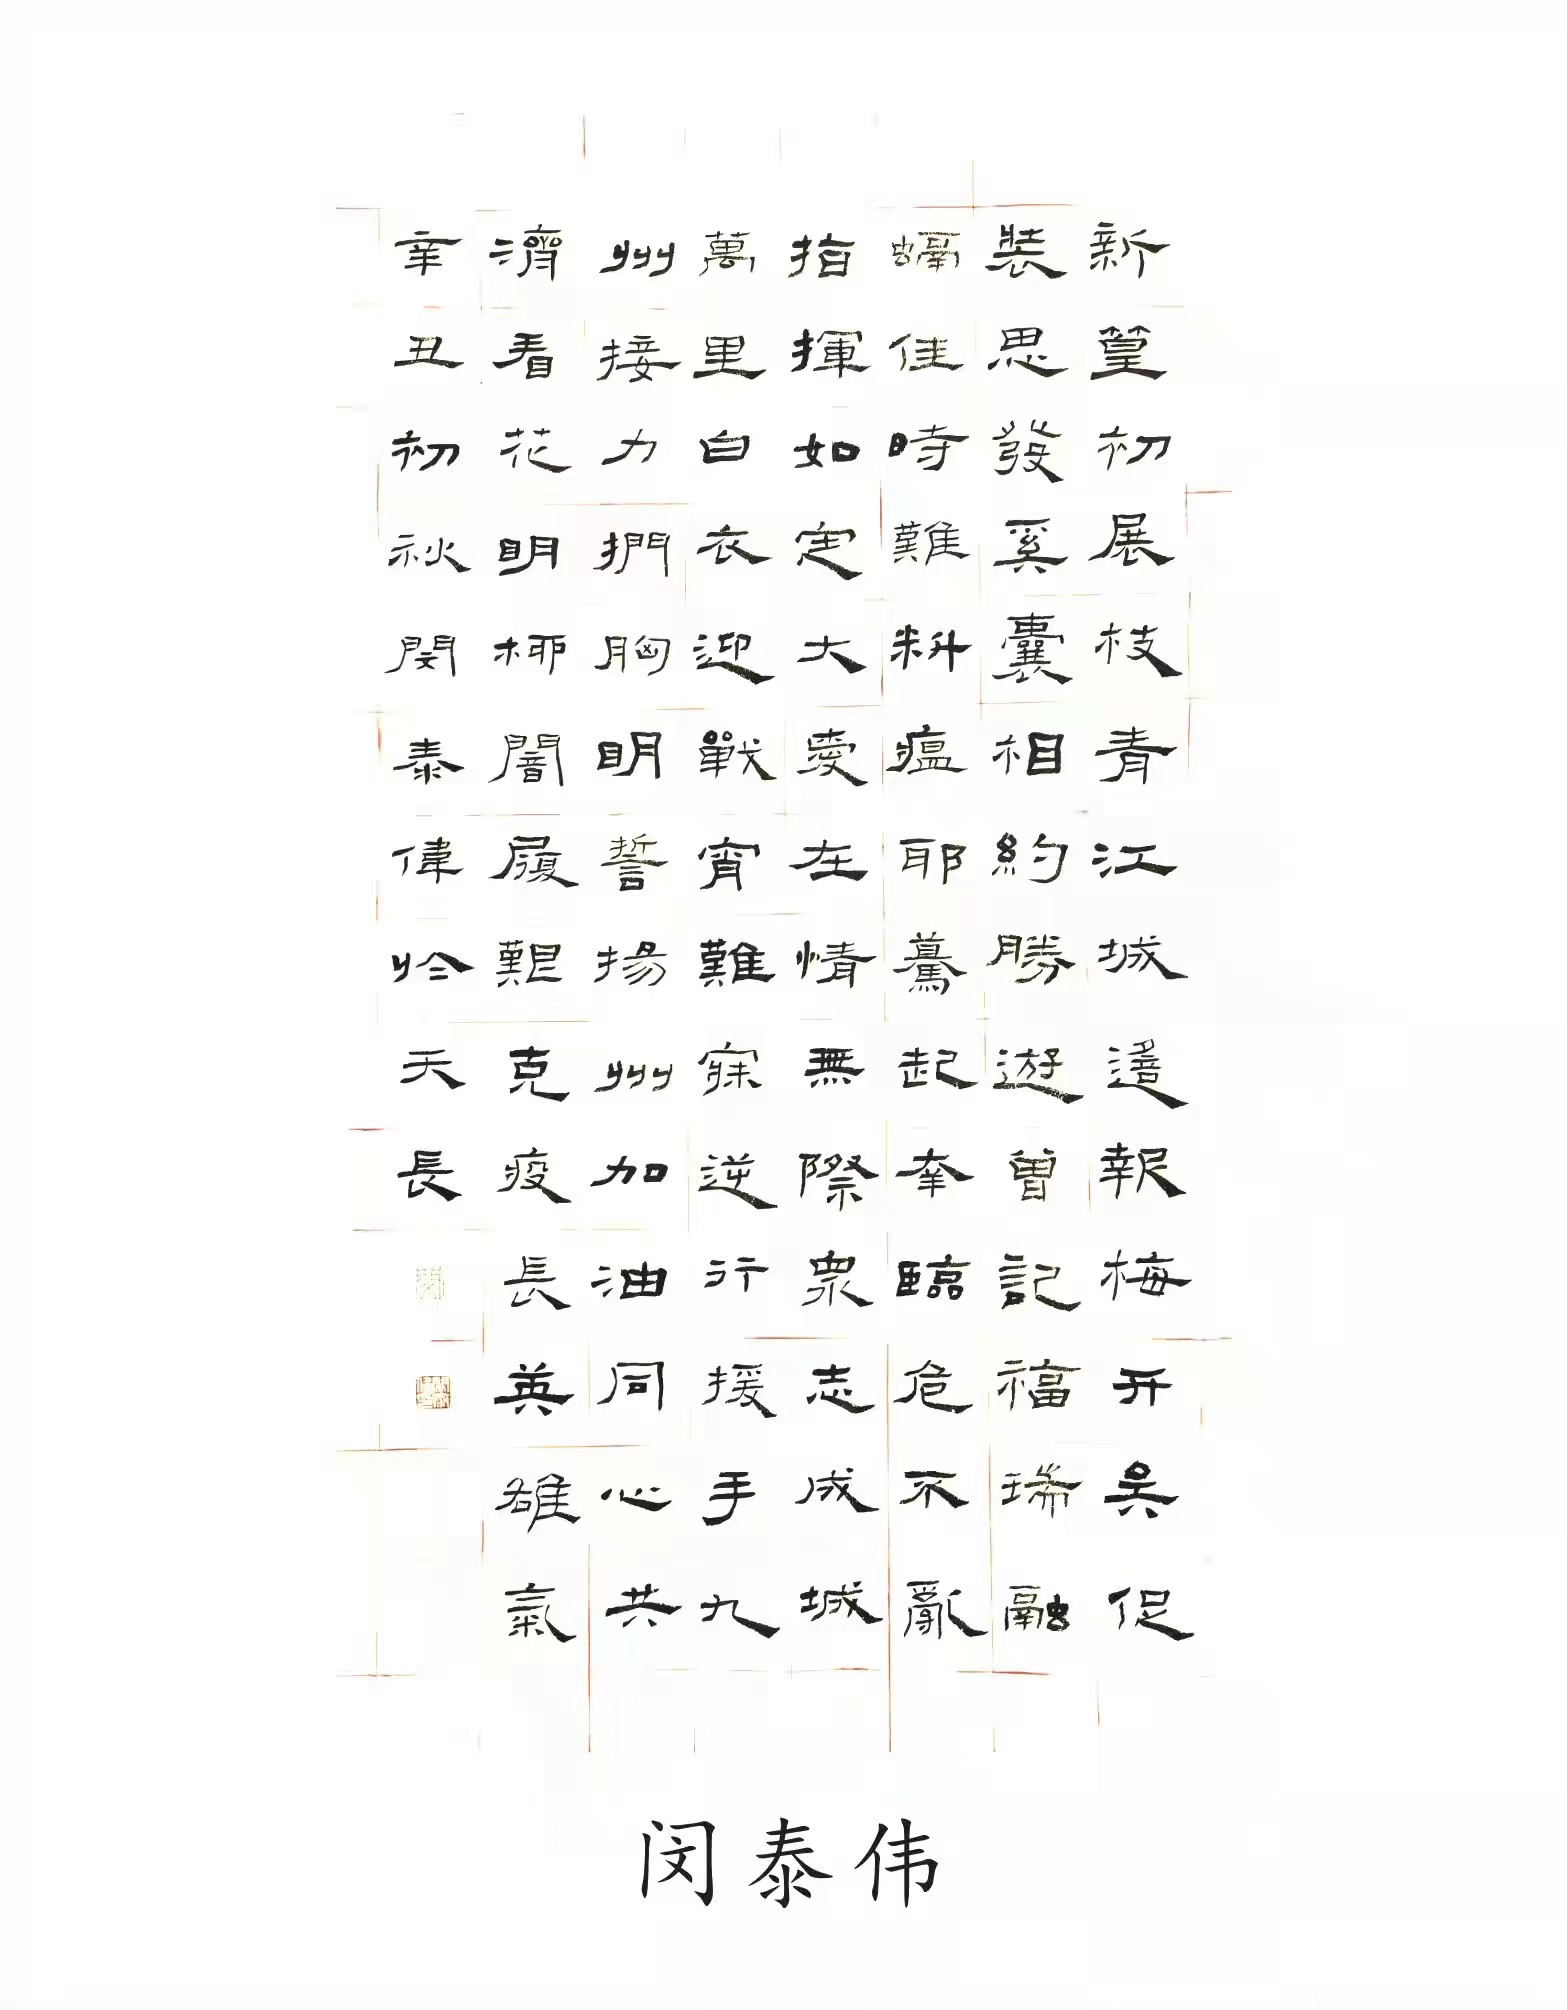 新篁初展枝青江城遙報梅开吳促
裝思發奚囊相約勝遊曾記福瑞融
螎佳時難料瘟耶驀起幸臨危不亂
指揮如定大愛在情無際衆志成城
萬里白衣迎戰宵難寐逆行援手九
州接力捫胸明誓揚州加油同心共
濟看花明柳闇履艱克疫長英雄氣
辛丑初秋閔泰偉於天長
闵泰伟